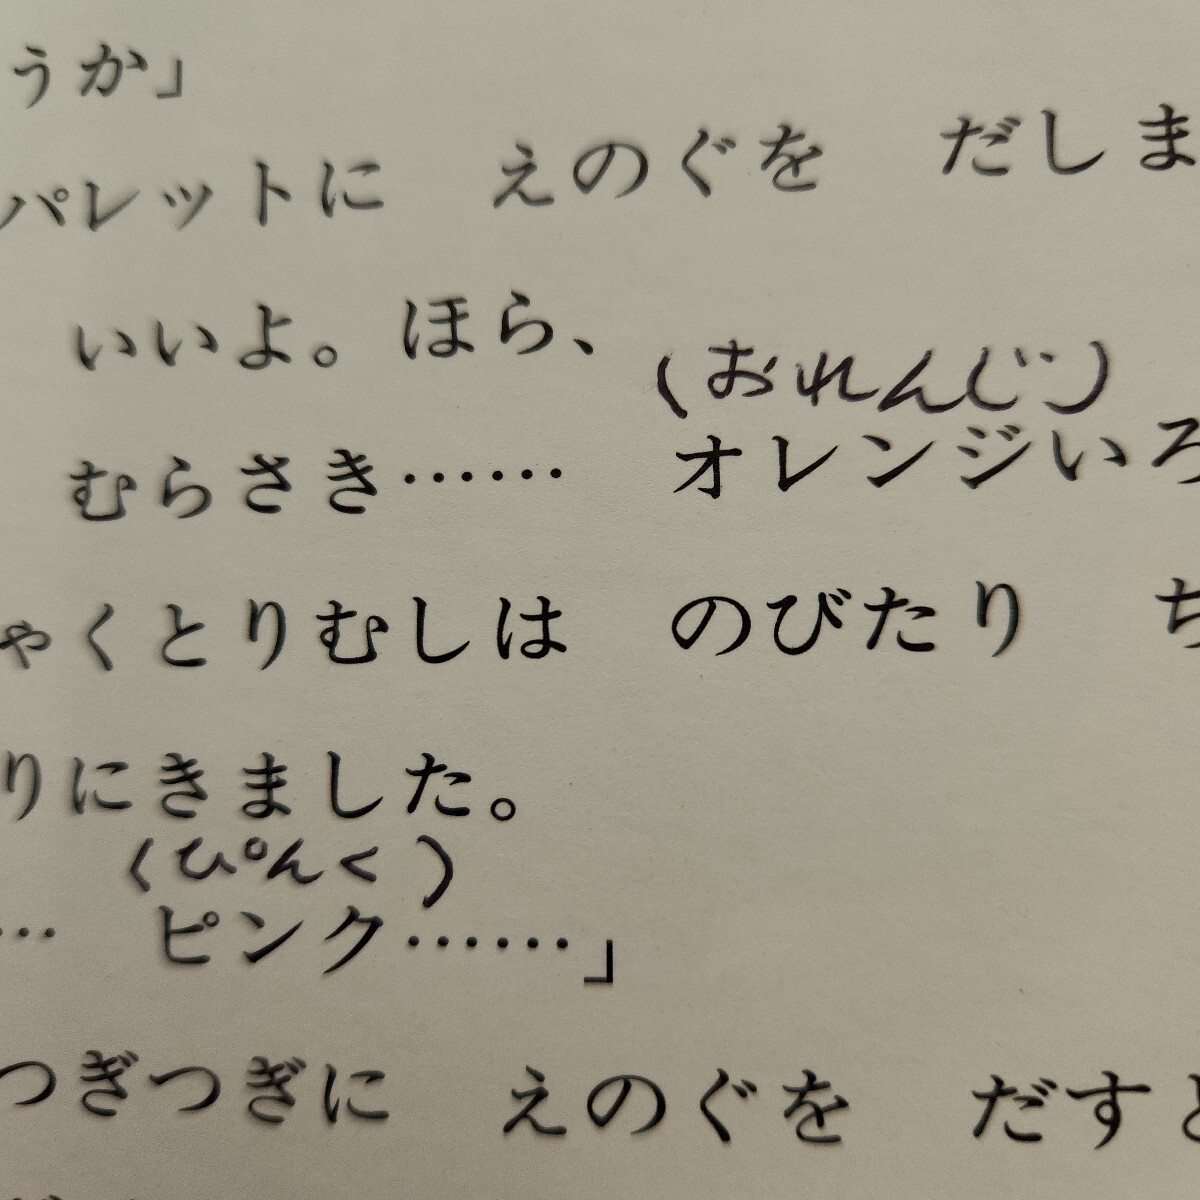 うか」
パレットに　えのぐを　だしま
いいよ。ほら、
(おれんじ)
むらさき……　オレンジいろ
ゃくとりむしは　のびたり　ち
りにきました。
(ぴんく)
…　ピンク……」
つぎつぎに　えのぐを　だすと